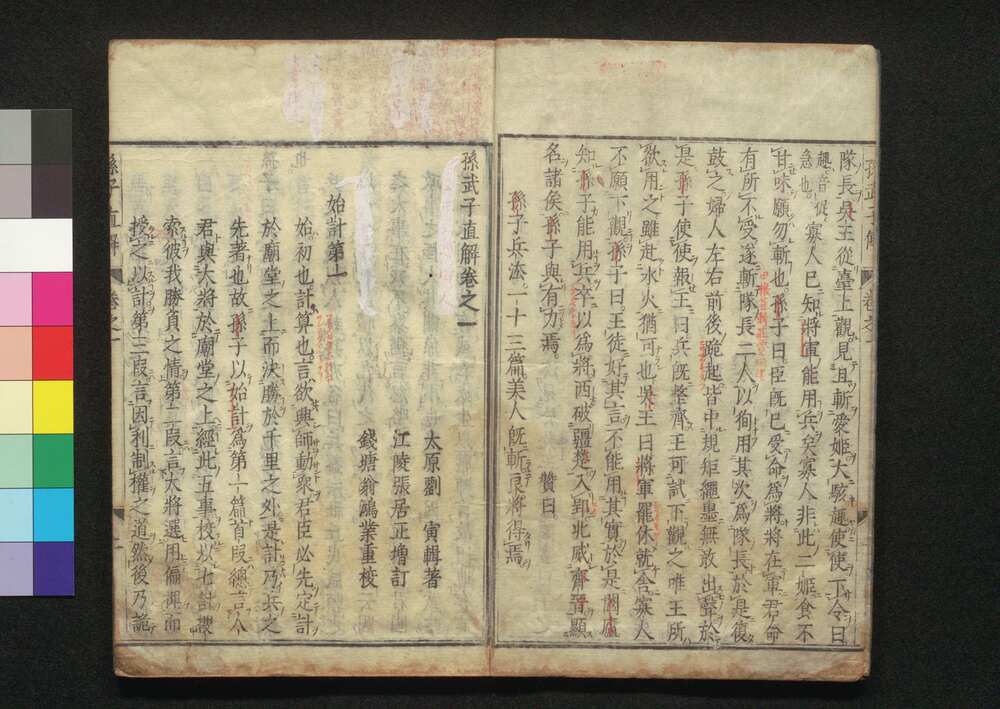 隊長吳王從臺上觀見且斬愛姬大駭趣使使下令曰
趣音促
急也
寡人已知將軍能用兵矣寡人非此二姬食不
甘味願勿斬也孫子曰臣既已受命爲將將在軍君命
有所不受遂斬隊長二人以狥用其次爲隊長於是復
鼓之婦人左右前後跪起皆中規矩繩墨無敢出聲於
是孫子使使報王曰兵既整齊王可試下觀之唯王所
欲用之雖赴水火猶可也吳王曰將軍罷休就舍寡人
不願下觀孫子曰王徒好其言不能用其實於是闔廬
知孫子能用兵卒以爲將西破彊楚入郢北威齊晉顯
名諸侯孫子與有力焉
贊曰
孫子兵法一十三篇美人既斬良將得焉
孫武子直解卷之一
太原劉寅輯著
江陵張居正增訂
錢塘翁鴻業重校
始計第一
始初也計算也言欲興師動衆君臣必先定計
於廟堂之上而決勝於千里之外是計乃兵之
先著也故孫子以始計爲第一篇首段總言人
君與大將於廟堂之上經此五事校以七計
索彼我勝負之情第二段言大將選用偏裨而
授之以計第三段言因利制權之道然後乃詭
孫子直解
卷之一